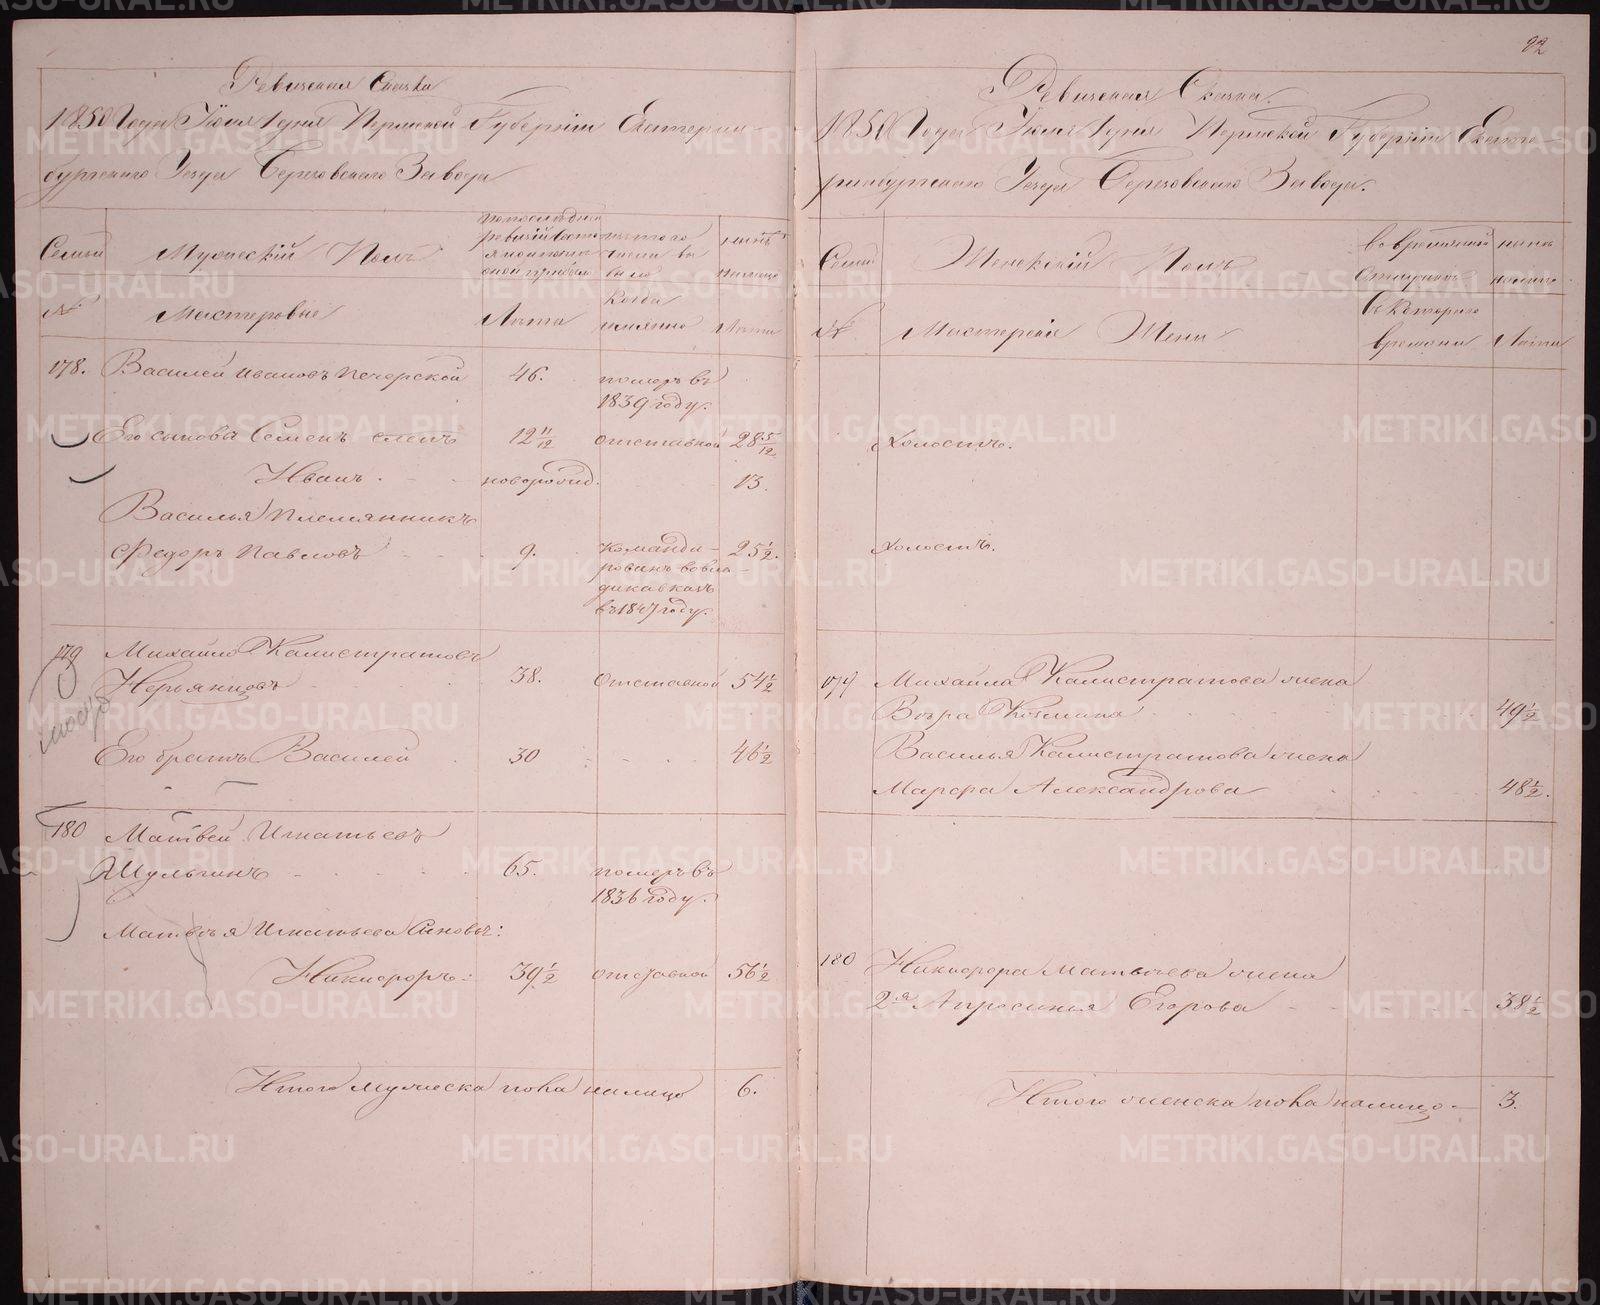 92
Ревизская Сказка
1850 Года Июля 1 дня Пермской Губернiи Екатерин-
бургского Уезда Березовского Завода
Семьи
Мужескiй Полъ
По последней
ревизiи состо
изъ того
числа вы
было
ныне
налицо
№
Мастеровые
Лета
когда
имянно
Лета
178. Василей Ивановъ Печерской 46. померъ въ
1839 году.
Его сыновья Семенъ слепъ 12 11/12 отставной 28 5/12
Иванъ. новорожд. 13.
Василья племянникъ
Федоръ Павловъ 9. команди- 25 1/2.
рованъ во Вла-
дикавказъ
въ 1847 году.
179 Михайло Калистратовъ
Нерьянцовъ 38. отставной 54 1/2
Его братъ Василей 30 46 1/2
180 Матвей Игнатьевъ
Шульгинъ 65. померъ въ
1836 году.
Матвея Игнатьева Сыновья:
Никифоръ: 39 1/2 отставной 56 1/2
Итого мужеска пола налицо 6.
Ревизская Сказка.
1850 Года Июля 1 дня Пермской Губернiи Екате-
ринбургского Уезда Березовского Завода.
Семьи
Женскiй Полъ
во временной
отлучке
ныне
налицо
№
Мастерскiе Жены
съ котораго
времени
Лета
Холостъ.
Холостъ.
179 Михайла Калистратова жена
Вера Козмина 49 1/2
Василья Калистратова жена
Марфа Александрова 48 1/2.
180 Никифора Матвеева жена
2я Апросинья Егорова 38 1/2
Итого женска пола налицо 3.
METRIKI.GASO-URAL.RU